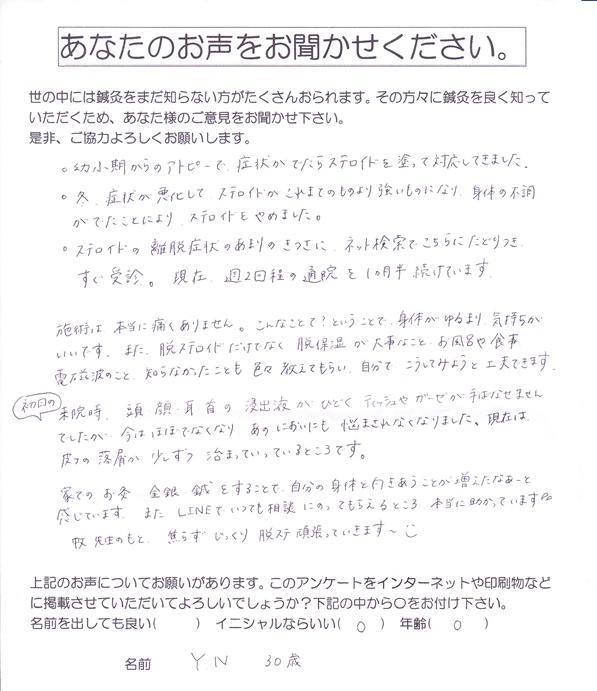 あなたのお声をお聞かせください。
世の中には鍼灸をまだ知らない方がたくさんおられます。その方々に鍼灸を良く知って
いただくため、あなた様のご意見をお聞かせ下さい。
是非、ご協力よろしくお願いします。
・幼少期からのアトピーで、症状がでたらステロイドを塗って対応してきました。
・冬、症状が悪化して、ステロイドがこれまでのものより強いものになり、身体の不調
がでたことにより、ステロイドをやめました。
・ステロイドの離脱症状のあまりのきつさに、ネット検索でこちらにたどりつき、
すぐ受診。現在、週2回程の通院を1ヶ月半続けています。
施術は、本当に痛くありません。こんなことで?ということで、身体がゆるまり、気持ちが
いいです。また、脱ステロイドだけでなく、脱保湿が大事なこと、お風呂や食事
電磁波のこと、知らなかったことも色々教えてもらい、自分でこうしてみようと工夫できます。
初回の
来院時、頭・顔・耳・首の浸出液がひどく、ティッシュやガーゼが手ばなせません
でしたが、今はほぼでなくなり、あのにおいにも悩まされなくなりました。現在は、
皮フの落屑が少しずつ治まっていっているところです。
家でのお灸、金銀鍼をすることで、自分の身体と向きあうことが増えたなぁーと
感じています。また、LINEでいつでも相談にのってもらえるところ、本当に助かっています
牧先生のもと、焦らずじっくり脱ステ頑張っていきます〜
上記のお声についてお願いがあります。このアンケートをインターネットや印刷物など
に掲載させていただいてよろしいでしょうか?下記の中から○をお付け下さい。
名前を出しても良い(　　) イニシャルならいい( ○ ) 年齢( ○ )
名前 YN 30歳